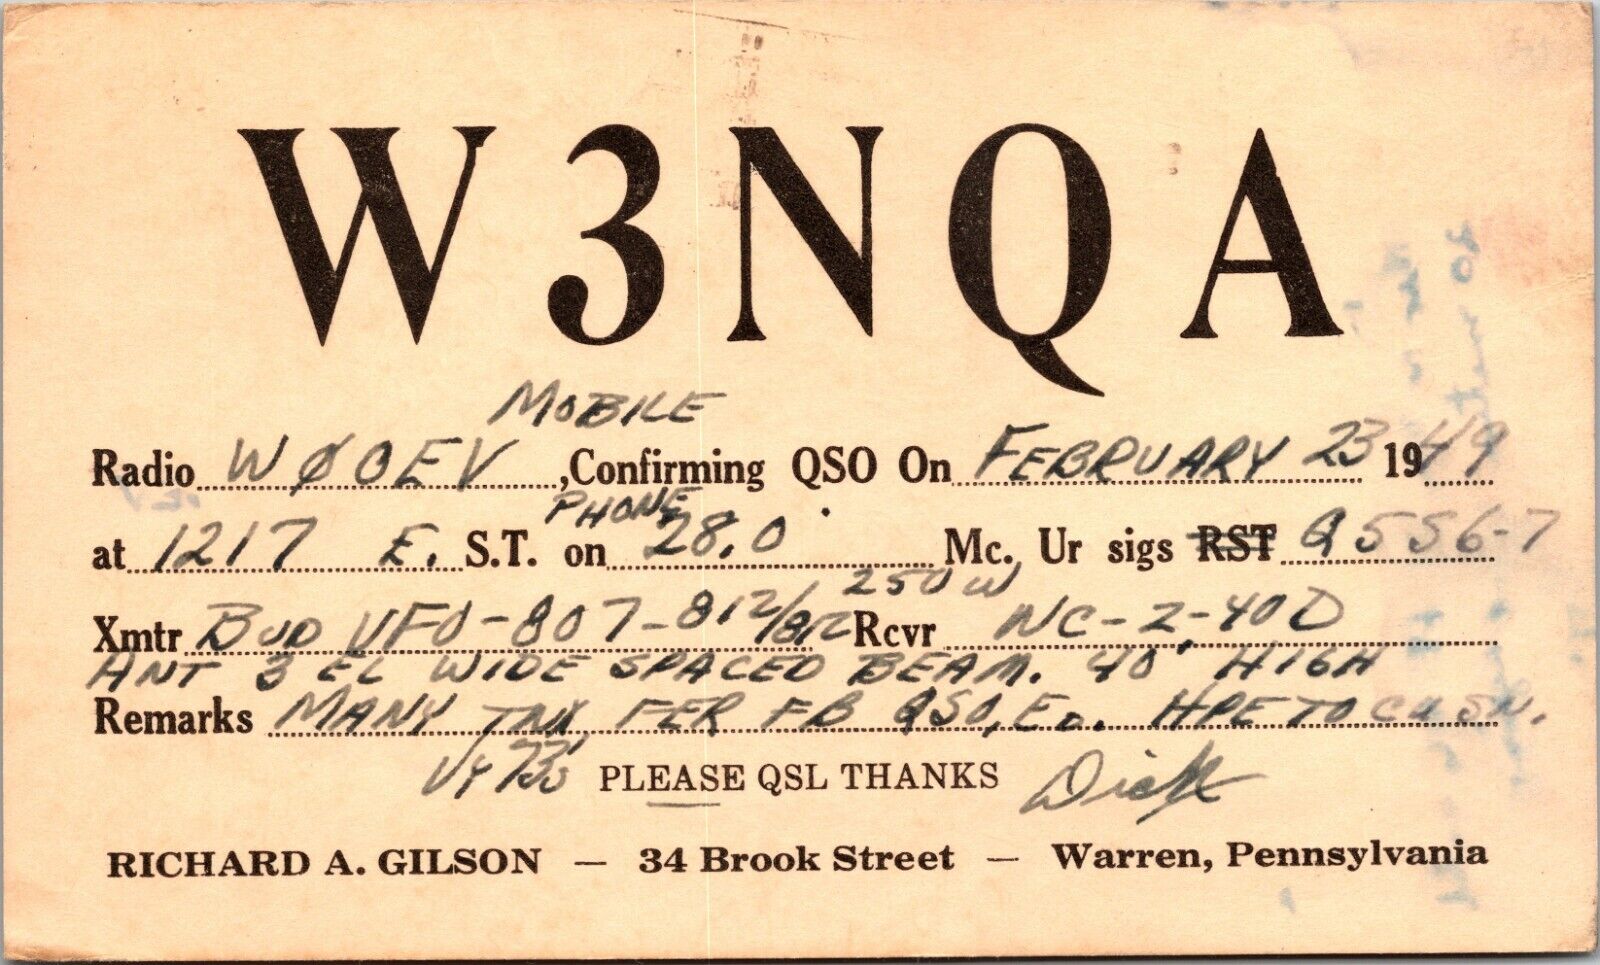 W3NQA
MOBILE
Radio WØOEV, Confirming QSO On FEBRUARY 23 1949
PHONE
at 1217 E. S.T. on 28.0 Mc. Ur sigs RST Q5S6-7
250W
Xmtr BUD VFO-807-812/812 Rcvr NC-2,40D
ANT 3 EL WIDE SPACED BEAM. 40' HIGH
Remarks MANY TNX FER FB QSO, ED. HPE TO CU SN.
VY 73' PLEASE QSL THANKS Dick
RICHARD A. GILSON — 34 Brook Street — Warren, Pennsylvania